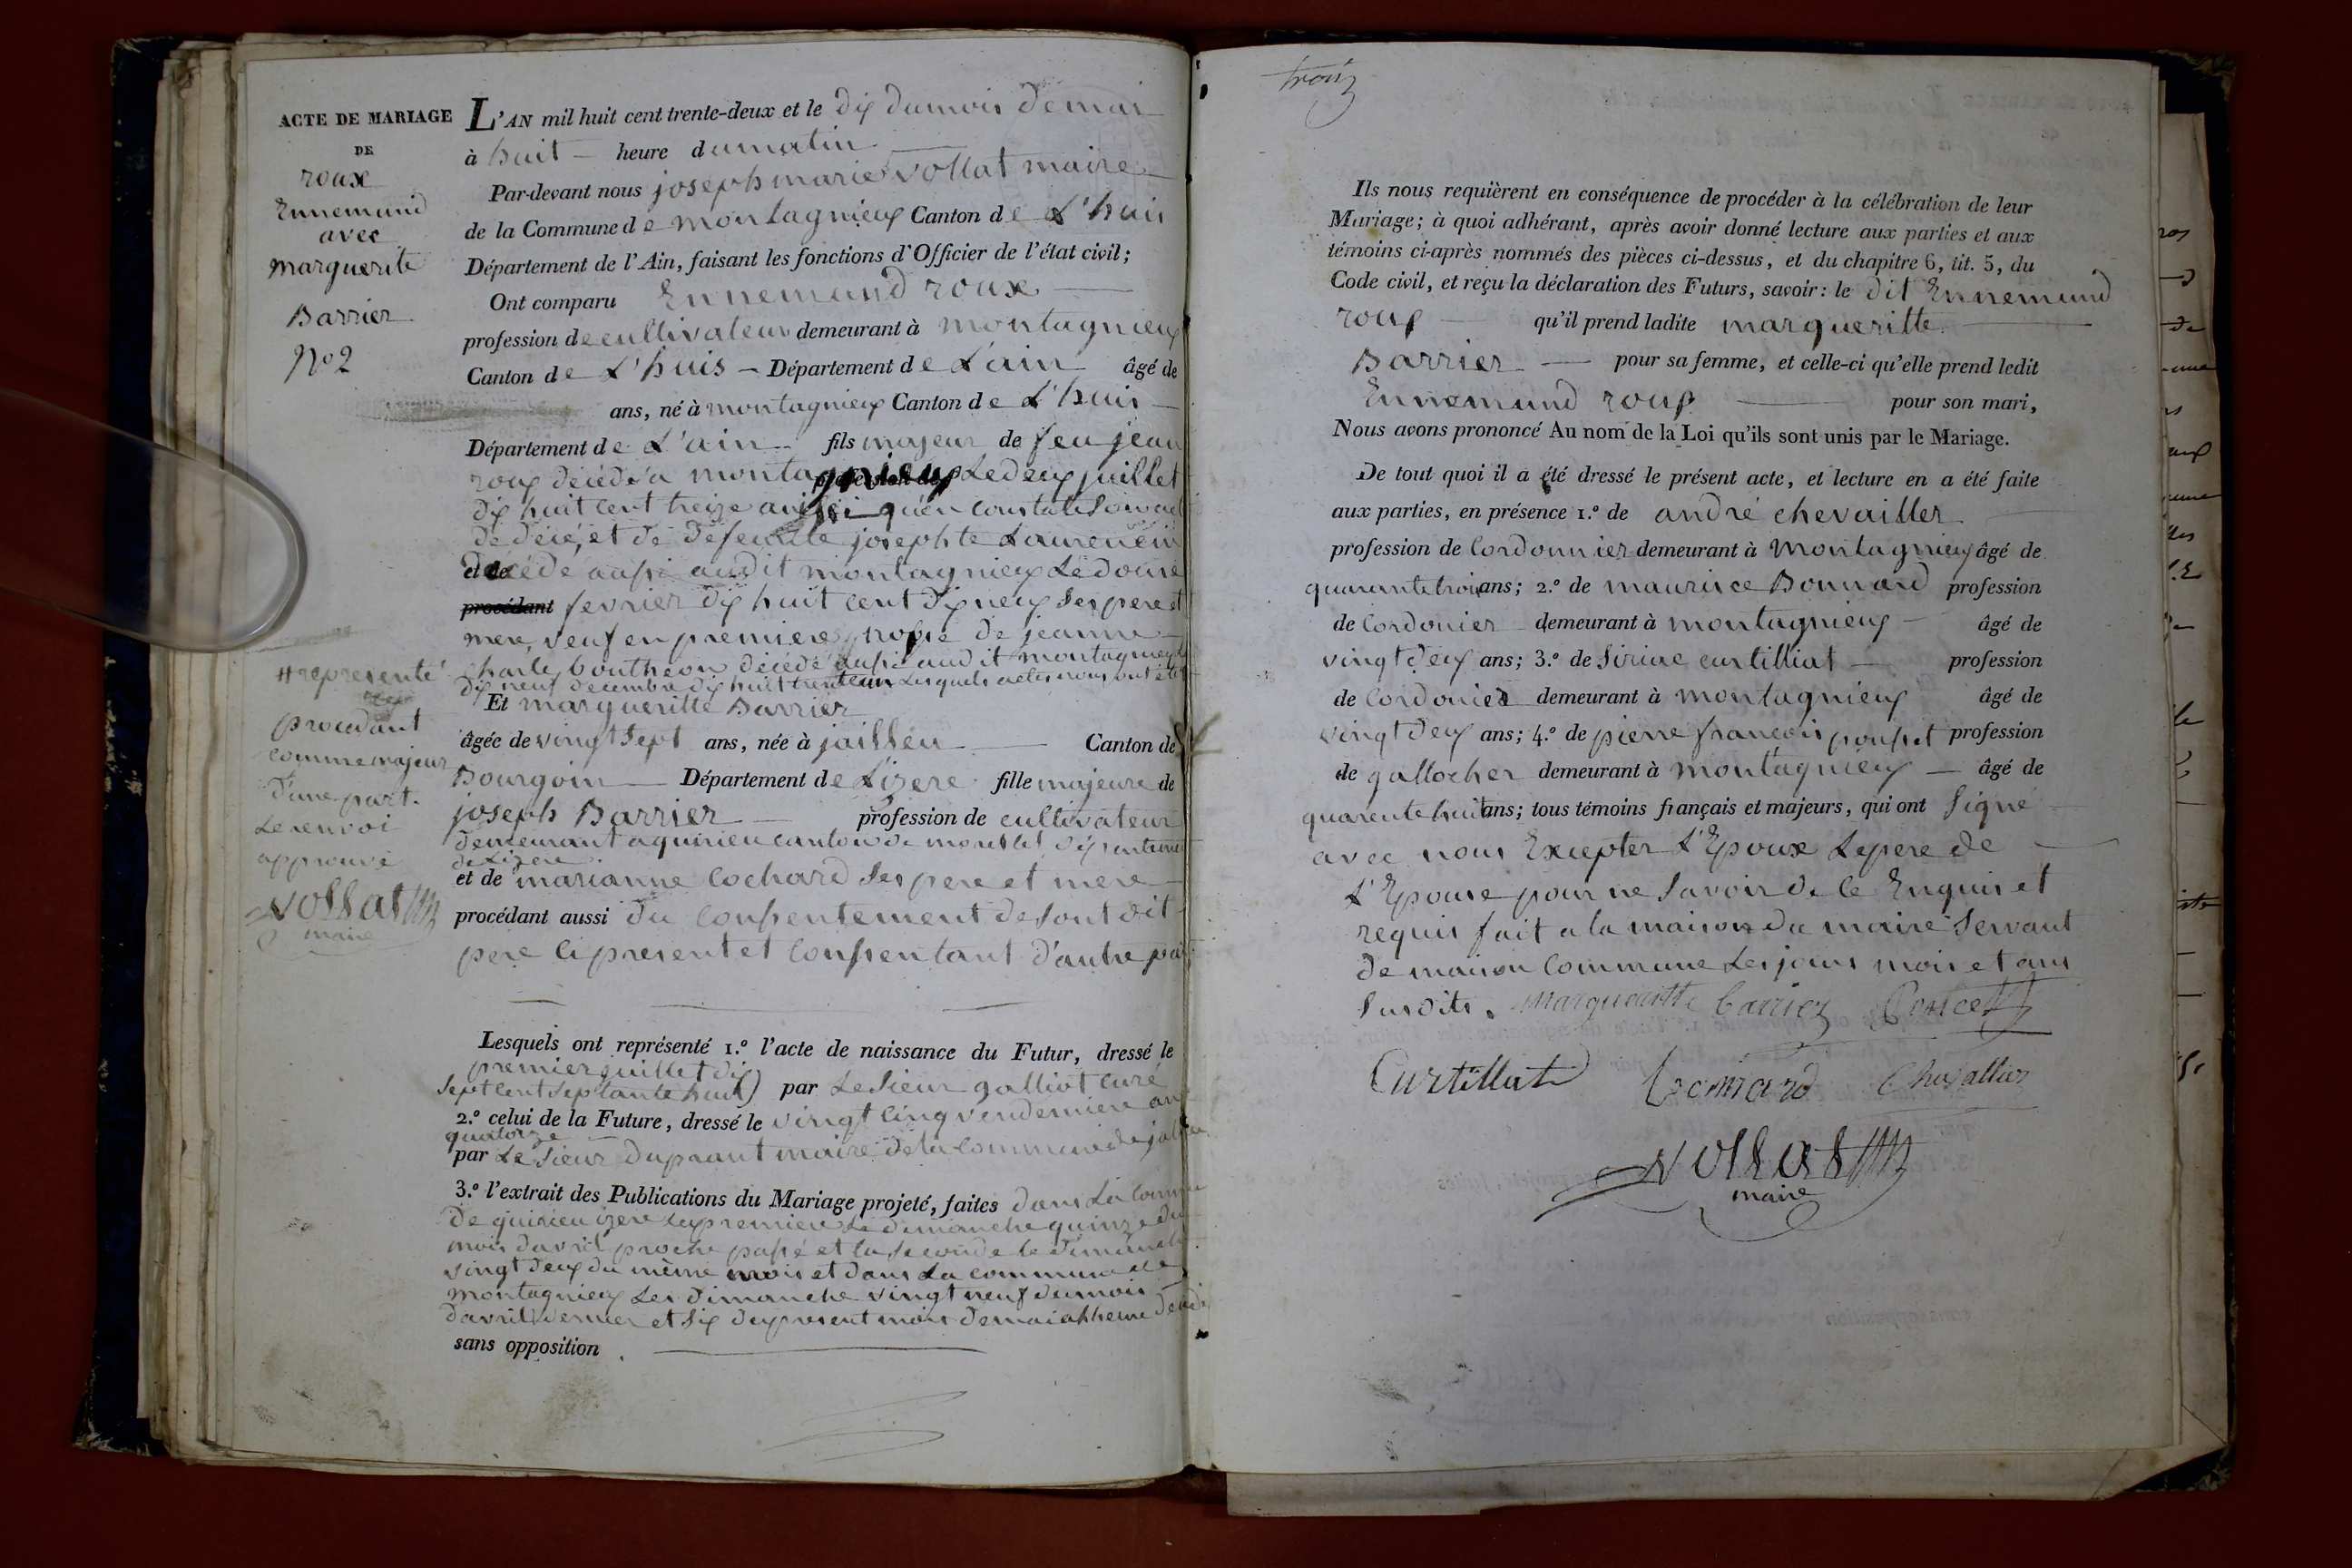 ACTE DE MARIAGE
DE
roux
Ennemund
avec
marguerite
Barrier
No 2
L'AN mil huit cent trente-deux et le dix du mois de mai
à huit heure du matin
Par-devant nous joseph marie vollat maire
de la Commune de montagnieux Canton de L'huis
Département de l'Ain, faisant les fonctions d'Officier de l'état civil;
Ont comparu Ennemund roux
profession de cultivateur demeurant à montagnieux
Canton de L'huis Département de L'ain âgé de
ans, né à montagnieux Canton de L'huis
Département de L'ain fils majeur de feu jean
roux décédé a montagnieux Le deux juillet
dix huit cent treize ainssi qu'en constate son act
de décé, et de defeunte josephte
décédé aussi audit montagnieux Le douse
procédant fevrier dix huit cent dix neuf ses pere et
mere, veuf en premiere nopse de jeanne
charle boutheon décédé aussi audit montagnieux
dix neuf decembre dix huit trenteun Lesquels actes nous ont été #
# representé
procedant
comme majeur
d'une part.
Le renvoi
approuvé
vollat
maire
Et margueritte Barrier
âgée de vingt sept ans, née à jaillieu Canton de
Bourgoin Département de Lizere fille majeure de
joseph Barrier profession de cultivateur
demeurant a quirieu canton de morestel département
de Lizere
et de marianne Cochard ses pere et mere
procédant aussi du consentement de sont dit
pere ci present et consentant d'autre part
Lesquels ont représenté 1.º l'acte de naissance du Futur, dressé le
premier juillet dix
sept cent septante huit) par Le Sieur galliot curé
2.º celui de la Future, dressé le vingt cinq vendemiere an
quatorze
par Le Sieur Duprant maire de la commune de
3.º l'extrait des Publications du Mariage projeté, faites dans La commune
de quirieu izere La premiere Le dimanche quinze du
mois davril proche passé et la seconde le dimanche
vingt deux du même mois et dans La commune de
montagnieux Les dimanche vingt neuf du mois
davril dernier et six du present mois de mai
sans opposition.
trois
Ils nous requièrent en conséquence de procéder à la célébration de leur
Mariage; à quoi adhérant, après avoir donné lecture aux parties et aux
témoins ci-après nommés des pièces ci-dessus, et du chapitre 6, tit. 5, du
Code civil, et reçu la déclaration des Futurs, savoir: le dit Ennemund
roux qu'il prend ladite margueritte
Barrier pour sa femme, et celle-ci qu'elle prend ledit
Ennemund roux pour son mari,
Nous avons prononcé Au nom de la Loi qu'ils sont unis par le Mariage.
De tout quoi il a été dressé le présent acte, et lecture en a été faite
aux parties, en présence 1.º de andré chevailler
profession de Cordonnier demeurant à Montagnieux âgé de
quarante trois ans; 2.º de maurisce Bonnard profession
de Cordonier demeurant à montagnieux âgé de
vingt deux ans; 3.º de Siriac curtilliat profession
de cordonier demeurant à montagnieux âgé de
vingt deux ans; 4.º de pierre francois profession
de gallocher demeurant à montagnieux âgé de
quarente huit ans; tous témoins français et majeurs, qui ont signé
avec nous Excepter L'Epoux Le pere de
L'Epouse pour ne savoir de ce Enquis et
requis fait a la maison du maire servant
de maison Commune Les jours mois et ans
susdits. Margueritte barrier Poncet
Curtillat bonnard Chevallier
vollat
maire